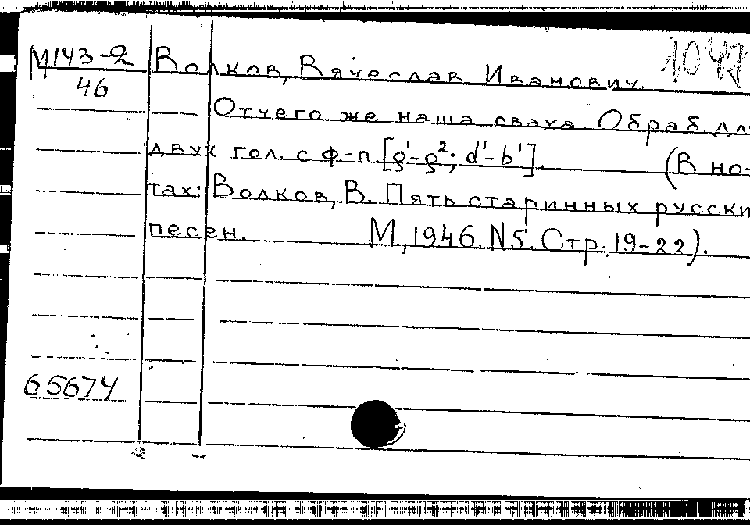 М143-2 Волков, Вячеслав Иванович.
46
Отчего же наша сваха Обраб. дл
двух гол. с ф-п. [g¹-g²; d¹-b¹]. (В но-
тах: Волков, В. Пять старинных русски
песен. М, 1946 N5. Стр. 19-22).
65674